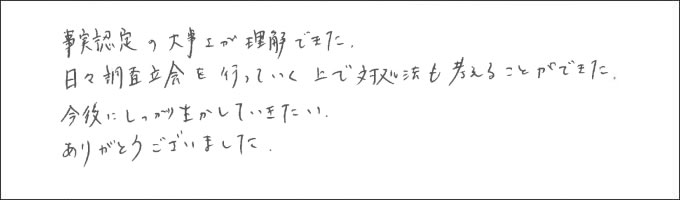 事実認定の大事さが理解できた.
日々調査立会を行っていく上で対処法も考えることができた.
今後にしっかり生かしていきたい.
ありがとうございました.